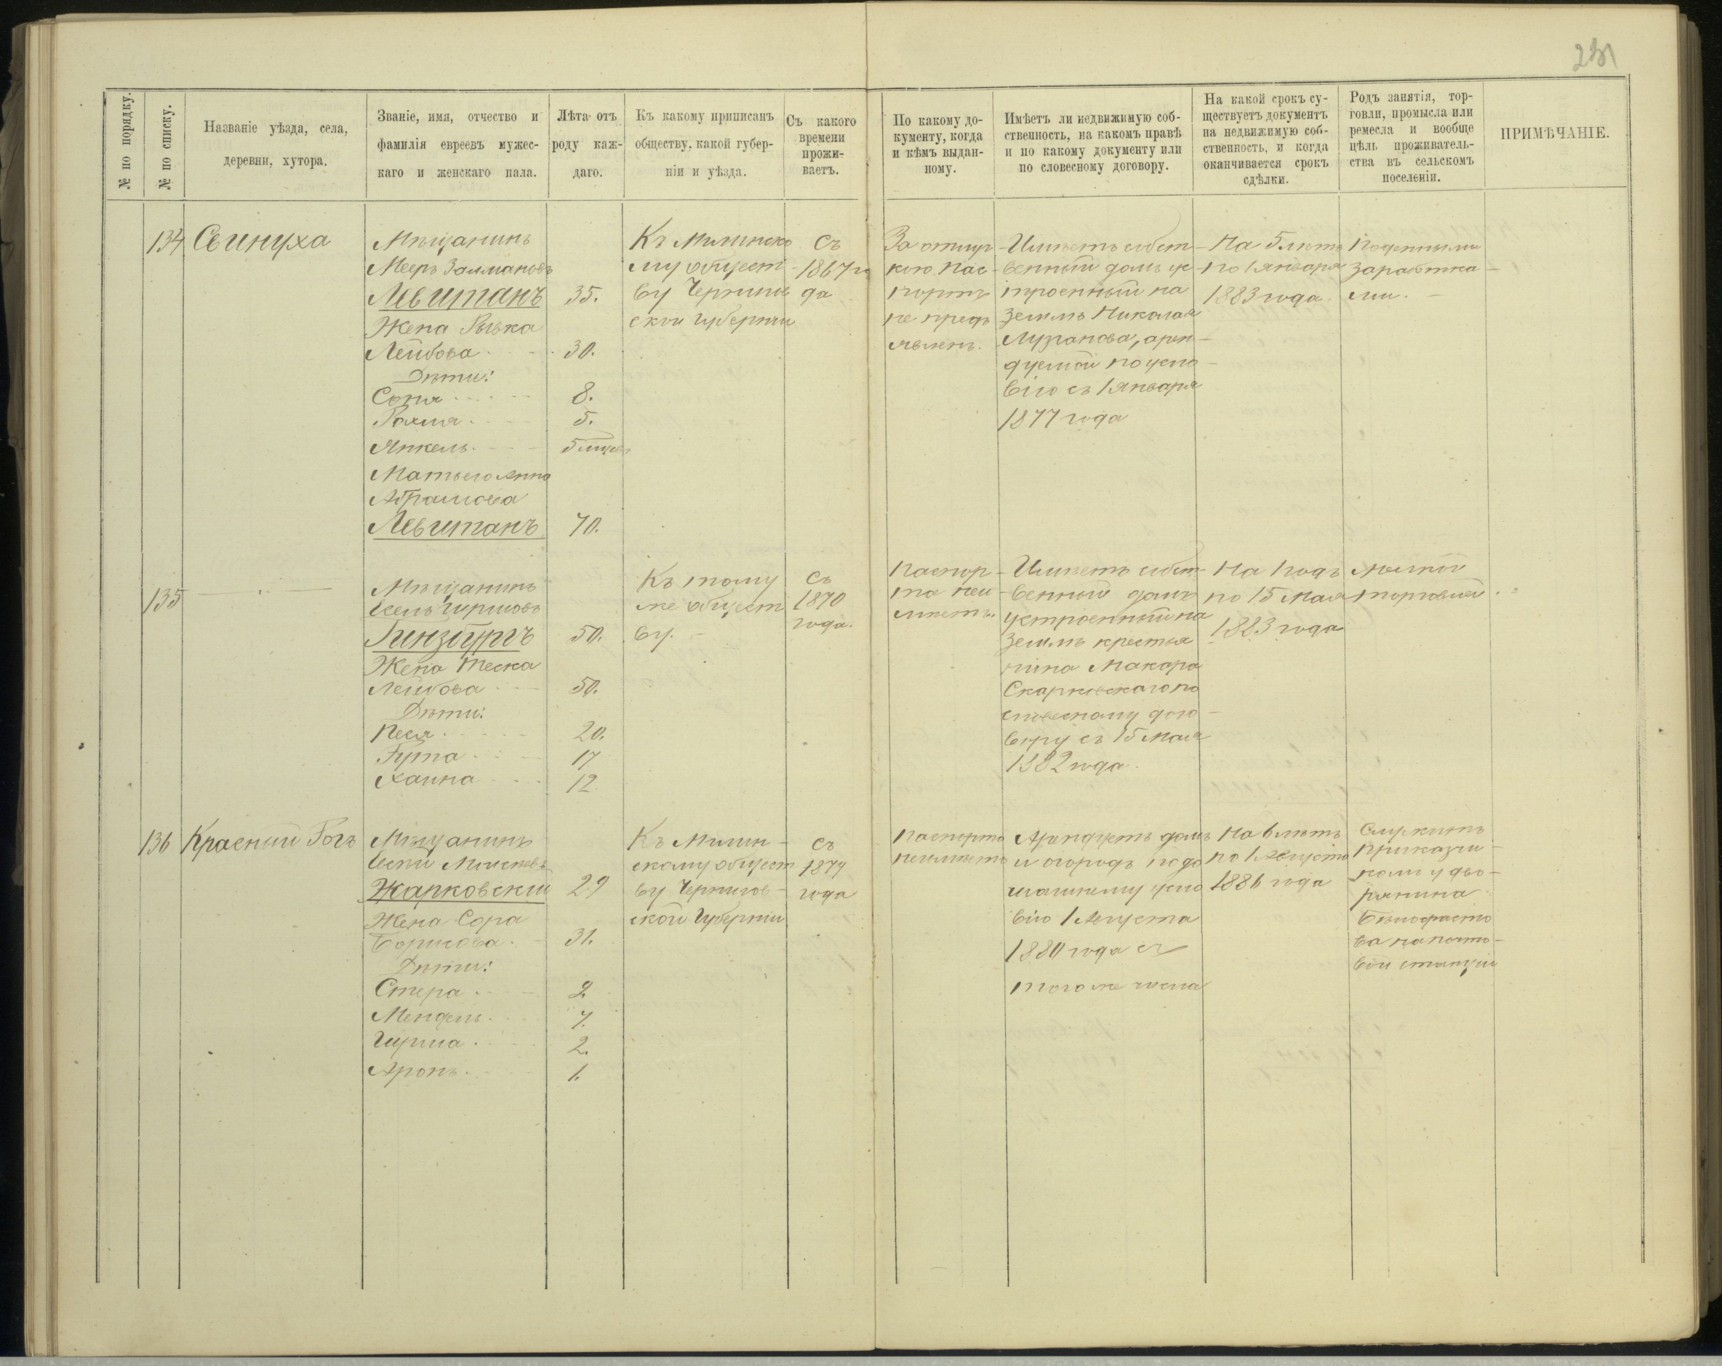 231
№ по порядку.
№ по списку.
Названіе уѣзда, села,
деревни, хутора.
Званіе, имя, отчество и
фамилія евреевъ мужес-
каго и женскаго пала.
Лѣта отъ
роду каж-
даго.
Къ какому приписанъ
обществу, какой губер-
ніи и уѣзда.
Съ какого
времени
прожи-
ваетъ.
По какому до-
кументу, когда
и кѣмъ выдан-
ному.
Имѣетъ ли недвижимую соб-
ственность, на какомъ правѣ
и по какому документу или
по словесному договору.
На какой срокъ су-
ществуетъ документъ
на недвижимую соб-
ственность, и когда
оканчивается срокъ
сдѣлки.
Родъ занятія, тор-
говли, промысла или
ремесла и вообще
цѣль проживатель-
ства въ сельскомъ
поселеніи.
ПРИМѢЧАНІЕ.
134
Свинуха
Мѣщанинъ
Мееръ Залмановъ
Левитанъ 35.
Жена Рывка
Лейбова 30.
Дѣти:
Соня 8.
5.
Янкель 5 мѣсяц
Мать его
Абрамова
Левитанъ 70.
Къ Мглинско
му общест
ву Чернигов
ской губерніи
Съ
1867 го
да
За отлуч
кою пас-
портъ
не предъ
явленъ.
Имѣетъ собст
венный домъ ус
троенный на
землѣ Николая
арен
дуемой по усло
вію съ 1 января
1877 года
На 5 лѣтъ
по 1 января
1883 года.
Поденными
заработка
ми.
135
— " —
Мѣщанинъ
Гиршовъ
Гинзбургъ 50.
Жена Теска
Лейбова 50.
Дѣти:
Песя 20.
Гута 17
Ханна 12
Къ тому
же общест
ву.
Съ
1870
года.
Паспор
та неи
мѣетъ.
Имѣетъ собст
венный домъ
устроенный на
землѣ крестья
нина Макара
Скарковскаго по
словесному дого
вору съ 15 Мая
1882 года.
На 1 годъ
по 15 Мая
1883 года
Мелкой
торговлей.
136
Красный Рогъ
Мѣщанинъ
Жарковскій 29
Жена Сора
Борисова 31.
Дѣти:
Стера
Мендель 7.
Гирша 2.
Аронъ 1.
Къ Мглин-
скому общест
ву Чернигов-
ской губерніи
Съ
1879
года
Паспорта
неимѣетъ
Арендуетъ домъ
и огородъ по до
машнему усло
вію 1 Августа
1880 года съ
того же числа
На 6 лѣтъ
по 1 Августа
1886 года
Служитъ
приказчи-
комъ у дво-
рянина
ва на почто-
вой станціи